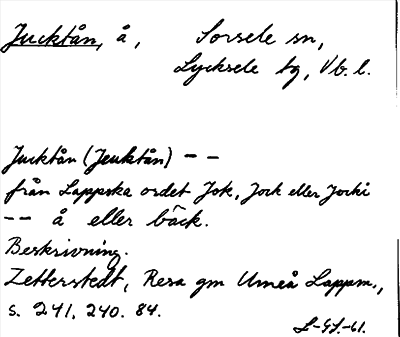 Jucktån, å, Sorsele sn,
Lycksele tg, Vb. l.
Jucktån (Jeuktån) – –
från Lappska ordet Jok, Jock eller Jocki
– – å eller bäck.
Beskrivning.
Zetterstedt, Resa gm Umeå Lappm.,
s. 241, 240. 84.